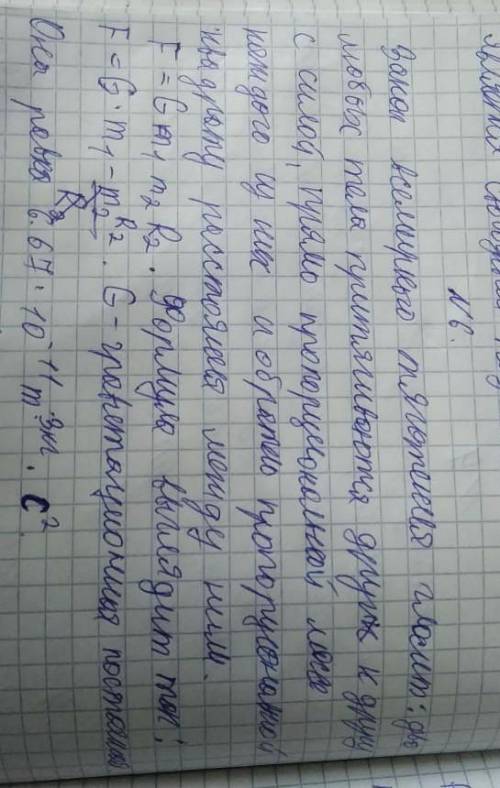 N6.
Закон всемирного тяготения гласит: два
любых тела притягиваются друг к другу
с силой, прямо пропорциональной массе
каждого из них и обратно пропорциональной
квадрату расстояния между ними.
F = G m1 m2 R2. Формула выглядит так:
F = G · m1 - m2 R2. G - гравитационная постоянная
Она равна 6.67 · 10 -11 m 3кг. c2.